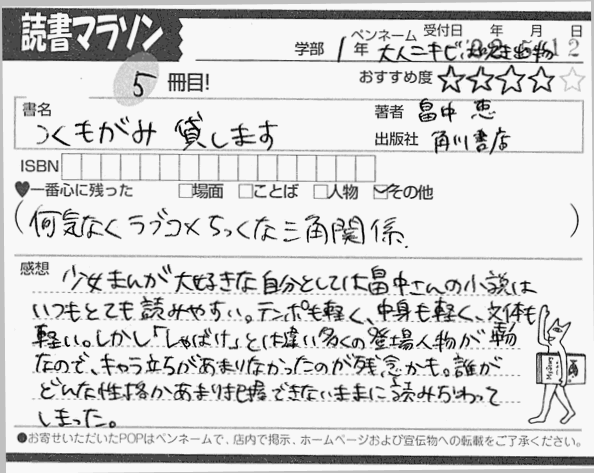 読書マラソン
受付日 年 月 日
学部 1年 ペンネーム 大人ニキビ
5 冊目!
おすすめ度 ★★★★☆
書名 つくもがみ 貸します
著者 畠中 恵
出版社 角川書店
ISBN
♥一番心に残った □場面 □ことば □人物 ☑その他
(何気なくラブコメちっくな三角関係.)
感想 少女まんが大好きな自分としては畠中さんの小説は
いつもとても読みやすい。テンポも軽く、中身も軽く、文体も
軽い。しかし「しゃばけ」とは違い多くの登場人物が
なので、キャラ立ちがあまりなかったのが残念かも。誰が
どんな性格かあまり把握できないままに読みおわって
しまった。
●お寄せいただいたPOPはペンネームで、店内で掲示、ホームページおよび宣伝物への転載をご了承ください。